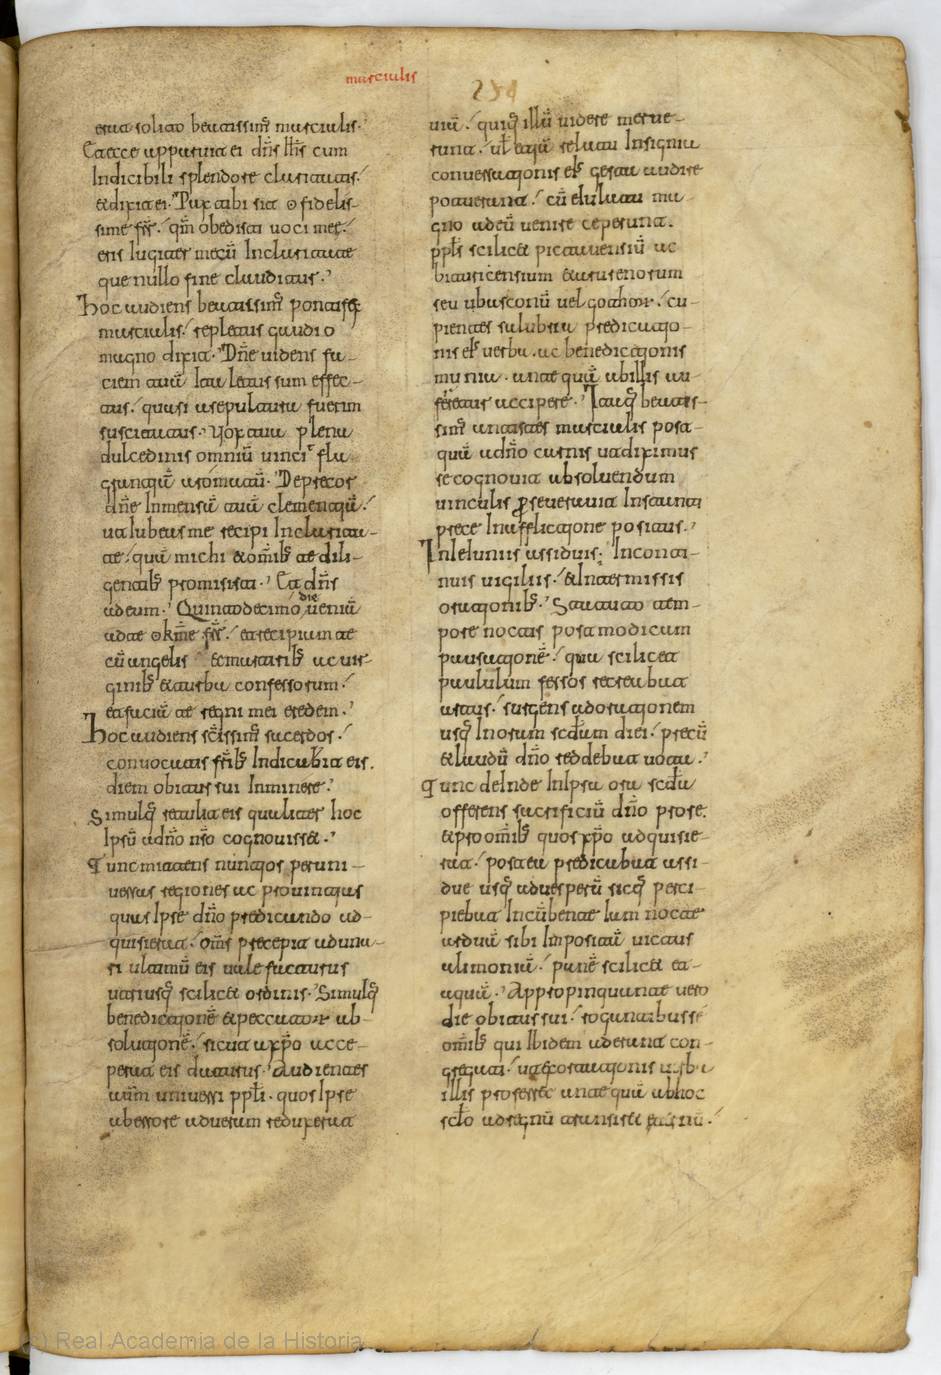 musciulis
254
erat solito beatissimꝰ musciulis.
Et ecce apparuit ei dn̄s Ih̄s cum
Indicibili splendore claritatis.
& dixit ei. Pax tibi sit o fidelis-
sime fr̄. qm̄ obedisti uoci meę.
eris Iugiter mecū In claritate
que nullo fine clauditur.
Hoc audiens beatissimꝰ pontifex
musciulis. repletus gaudio
magno dixit. Dn̄e uidens fa-
ciem tuā Ita letus sum effec-
tus. quasi a sepultura fuerim
suscitatus. Uox tua plena
dulcedinis omniū uincit fla-
grantiā aromatū. Deprecor
dn̄e Inmensā tuā clementiā.
ut Iubeas me recipi In clarita-
te. quā michi & omibꝰ te dili-
gentibꝰ promisisti. Et dn̄s
ad eum. Quinto decimo die ueniā
ad te o km̄e fr̄. et recipiam te
cū angelis & martiribꝰ ac uir-
ginibꝰ & turba confessorum.
et faciā te regni mei eredem.
Hoc audiens sc̄issimꝰ sacerdos.
conuocatis fr̄ibꝰ Indicabit eis.
diem obitus sui Inminere.
Simulqꝫ retulit eis qualiter hoc
Ipsū a dn̄o nr̄o cognouisset.
Tunc mittens nuntios per uni-
uersas regiones ac prouintias
quas Ipse dn̄o predicando ad-
quisierat. om̄s precepit aduna-
ri ultimū eis uale facturus
utriusqꝫ scilicet ordinis. Simulqꝫ
benedictionē & peccatorum ab-
solutionē. sicut a xp̄o acce-
perat eis daturus. Audientes
autem uniuersi ppl̄i. quos Ipse
ab errore ad uerum reduxerat
uiā. qui qꝫ illū uidere merue-
runt. ul̄ etiā relatu Insignia
conuersationis eiꝰ gesta audire
potuerunt. cū eiulatu ma-
gno ad eū uenire ceperunt.
ppl̄s scilicet pictauensiū ac
bituricensium & turenorum
seu ubasconū uel gothorum. cu-
pientes salubria predicatio-
nis eiꝰ uerba. ac benedictionis
munia. ante quā ab illis au-
ferretur accipere. Itaqꝫ beatis-
simꝰ antistes musciulis post-
quā a dn̄o carnis ut diximus
se cognouit absoluendum
uinculis perseuerauit Instanti
prece In afflictione positus.
In Ieiuniis assiduis. In conti-
nuis uigiliis. & Intermissis
orationibꝰ. Statuto tem-
pore noctis post modicum
pausationē. qua scilicet
paululum fessos recreabat
artus. surgens ad orationem
usqꝫ In oram sc̄dam diei. precū
& laudū dn̄o reddebat uota.
Tunc deInde In Ipsa ora sc̄da
offerens sacrificiū dn̄o pro se.
& pro omibꝰ quos xp̄o adquisie-
rat. postea predicabat assi-
due usqꝫ ad uesperū sicqꝫ perci-
piebat Incūbente Iam nocte
arduū sibi Impositū uictus
alimoniā. panē scilicet et
aquā. Appropinquante uero
die obitus sui. rogantibus se
omibꝰ qui Ibidem aderant con-
gregati. ut exortationis uerba
illis proferret ante quā ab hoc
sc̄lo ad regnū transiret eternū.